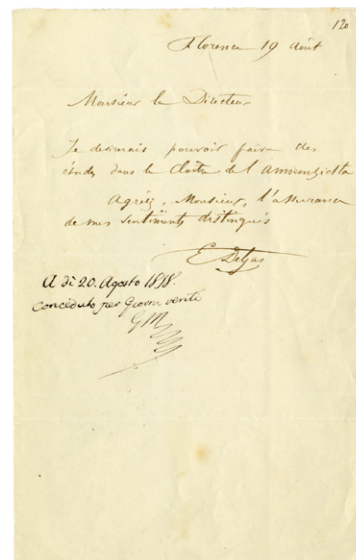 120
Florence 19 Août
Monsieur le Directeur
Je desirerais pouvoir faire des
études dans le Cloître de l'Annunziatta
Agréez, Monsieur, l'assurance
de mes sentiments distingués
E. DeGas
A dì 20. Agosto 1858.
Conceduto per Giorni venti
GM